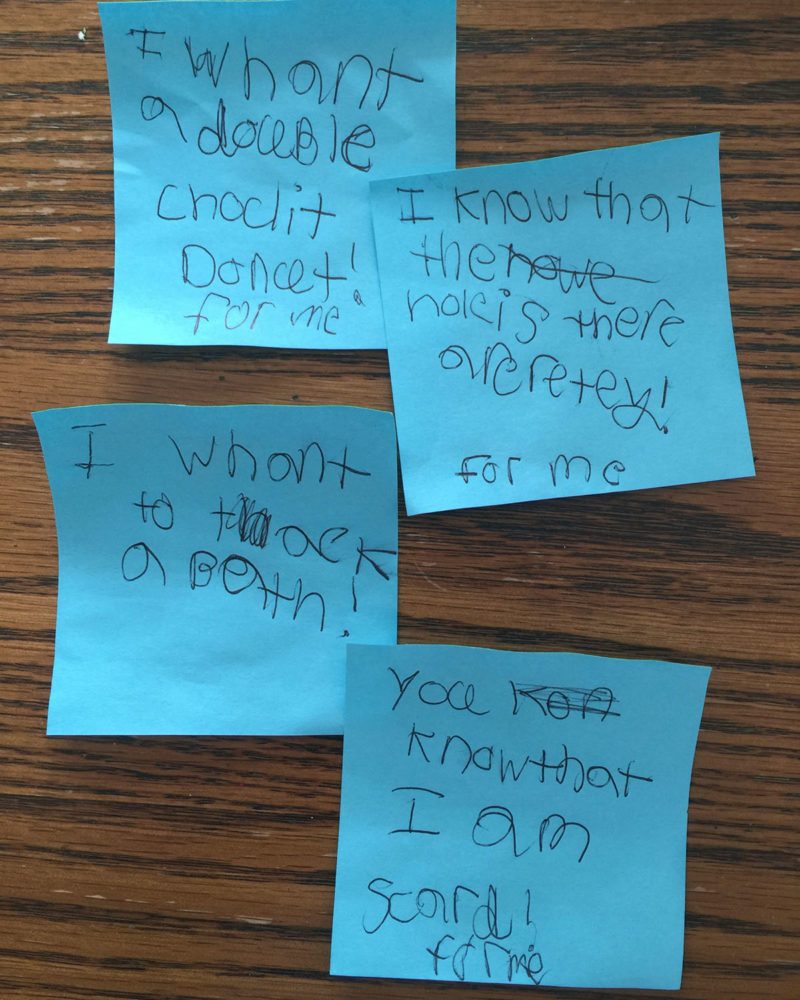 I whant
a douBle
choclit
Donut!
for me
I know that
the nowe
note is there
for me
I whant
to tack
a Bath!
you kon
know that
I am
scard!
for me